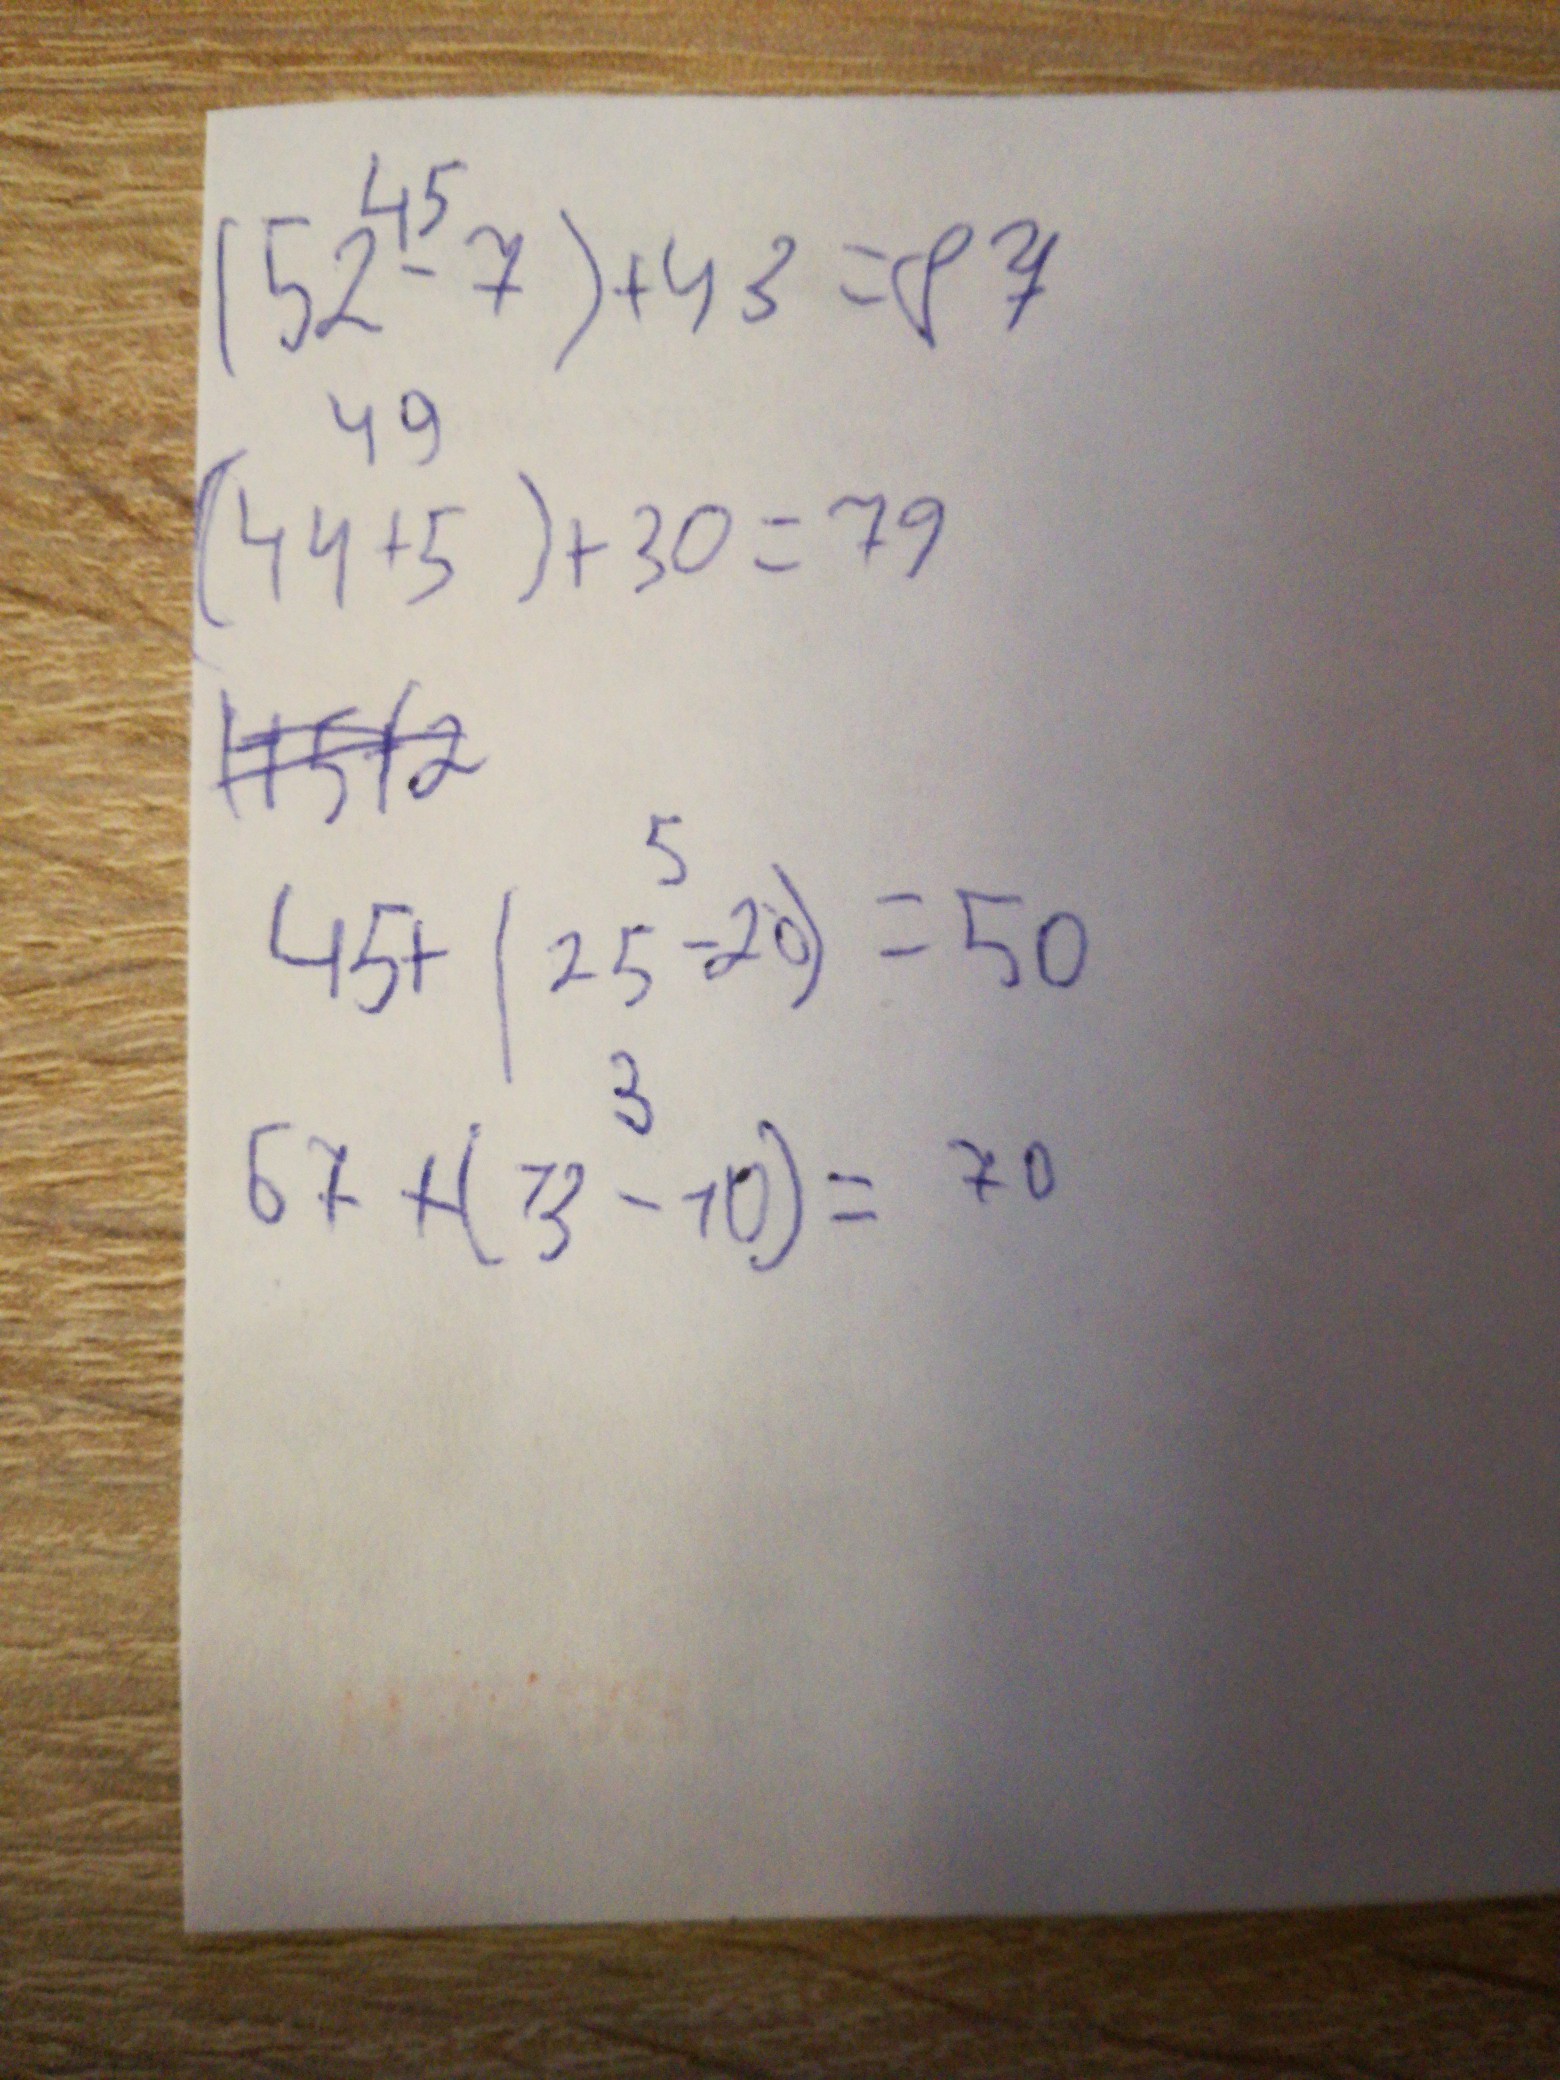 45
(52-7)+43=87
49
(44+5)+30=79
5
45+(25-20)=50
3
67+(13-10)=70